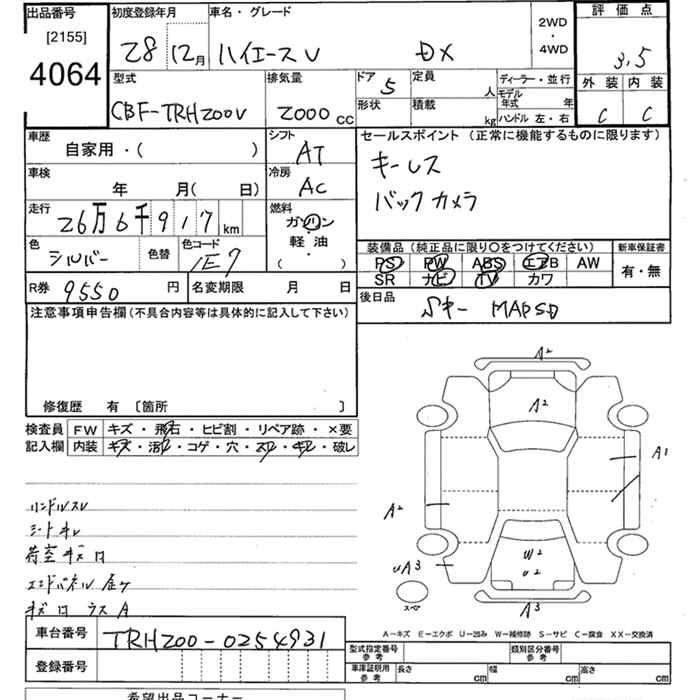 出品番号 初度登録年月 車名・グレード 2WD・4WD 評価点
[2155] 4064 28 12月 ハイエースV DX 3.5
型式 排気量 ドア 定員 ディーラー・並行 外装 内装
CBF-TRH200V 2000cc 5 人 モデル年式 年 C C
形状 積載 kg ハンドル 左・右
車歴 シフト セールスポイント (正常に機能するものに限ります)
自家用・( ) AT キーレス
車検 冷房 バックカメラ
年 月( 日) AC
走行 燃料
26万6千917km ガソリン・軽油・( )
色 色替 色コード 装備品 (純正品に限り○をつけてください) 新車保証書
シルバー 1E7 PS PW ABS エアB AW 有・無
SR ナビ TV カワ
R券 9550円 名変期限 月 日 後日品 Sキー MAPSD
注意事項申告欄 (不具合内容等は具体的に記入して下さい)
修復歴 有 〔箇所 〕
検査員 FW キズ・飛石・ヒビ割・リペア跡・×要
記入欄 内装 キズ・汚レ・コゲ・穴・スレ・キレ・破レ
A2
A2
A1
A2
W2
U2
UA3
A3
スペア
ハンドルスレ
シートキレ
荷室キズ凹
エンドパネルサビ
キズ凹ラスA
A-キズ E-エクボ U-凹み W-補修跡 S-サビ C-腐食 XX-交換済
車台番号 TRH200-0254931
登録番号
型式指定番号 参考 類別区分番号 参考
車庫証明用 参考 長さ cm 幅 cm 高さ cm
希望出品コーナー